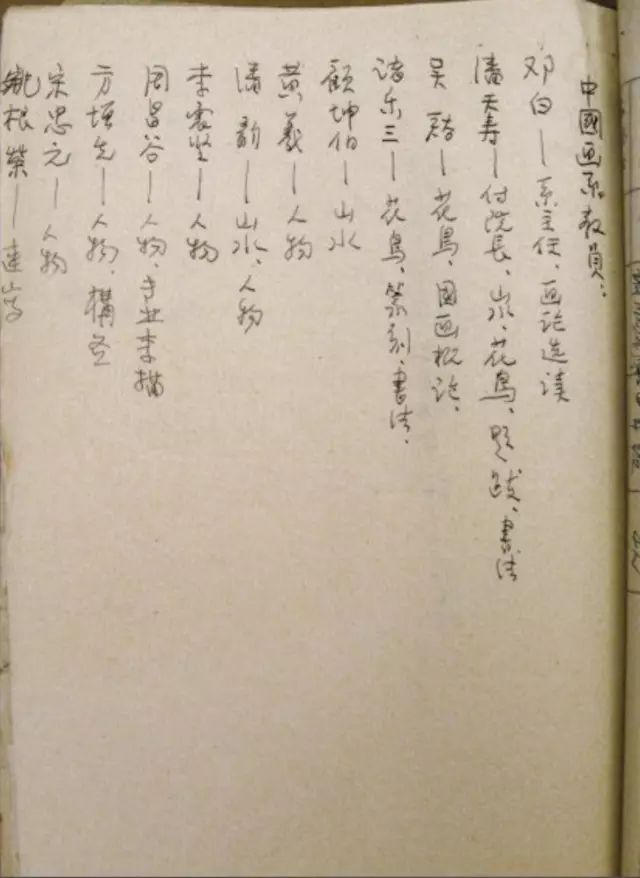 中國画系教員：
邓白—系主任、画论选读
潘天寿—付院長、山水、花鳥、题跋、書法
吴茀之—花鳥、国画概论、
诸乐三—花鳥、篆刻、書法、
顾坤伯—山水
黄羲—人物
潘韵—山水、人物
李震坚—人物
周昌谷—人物、专业素描
方增先—人物、構图
宋忠元—人物
姚根荣—透